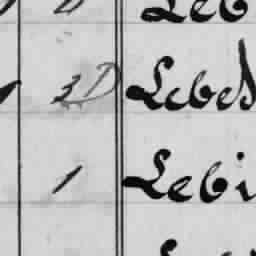 Leb
3D Lebed
1 Lebi